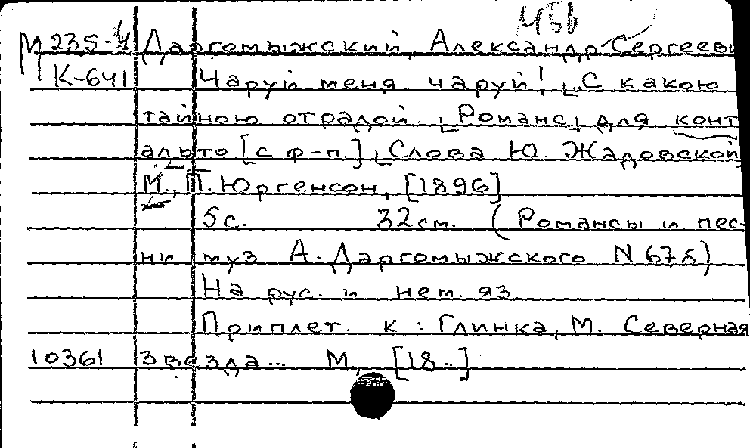 456
М 235-4 Даргомыжский, Александр Сергееви
К-641 Чаруй меня чаруй! С какою
тайною отрадой. Романс для конт
альто [с ф-п]. Слова Ю. Жадовской
М., П. Юргенсон, [1896]
5с. 32см. (Романсы и пес-
ни муз А. Даргомыжского N 67б)
На рус. и нем. яз
Приплет. к: Глинка, М. Северная
10361 звезда... М, [18..]